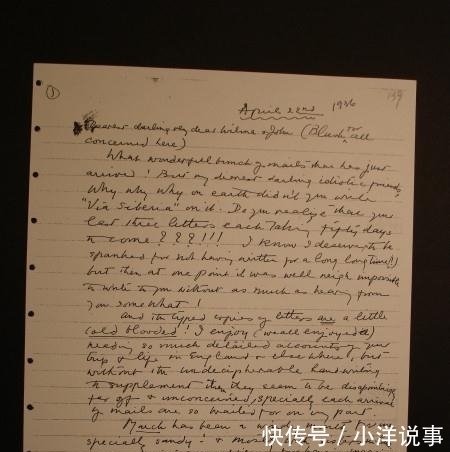 ①
139
April 22nd 1936
Dearest darling my dear Wilma & John (Blush for all
concerned here)
What wonderful bunch of mails that has just
arrived! But my dearest darling idiotic friends
Why why why on earth didn't you write
"Via Siberia" on it. Do you realize that your
last three letters each taking fifty days
to come ? ? ? ! ! ! I know I deserve to be
spanked for not having written for a long long time(!)
but then at one point it was well neigh impossible
to write to you without as much as hearing from
you somewhat!
And the typed copies of letters are a little
cold blooded! I enjoy (we all enjoyed it)
reading so much detailed accounts of your
trip & life in England & elsewhere, but
without the undecipherable handwriting
to supplement them they seem to be disappointing
far off & unconcerned, specially each arrival
of mails are so waited for on my part.
March has been a
specially sandy!
快传号 / 小洋说事